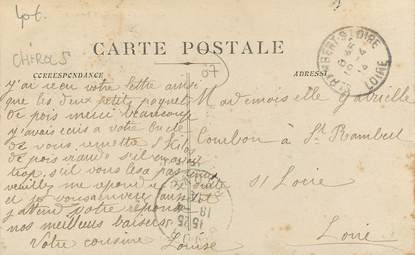 Lot.
CHIROLS
CARTE POSTALE
07
CORRESPONDANCE
ADRESSE
St RAMBERT-S-LOIRE
LOIRE
j'ai reçu votre lettre ainsi
que les deux petits paquets
de pois merci beaucoup
j'avais écris a votre oncle
de vous remettre 5 kilos
de pois
trop, s'il vous
veuillez me répondre de suite
et je vous enverrai
j'attend votre réponse
nos meilleurs baisers
Votre cousine Louise
Mademoiselle Gabrielle
Courbon à St Rambert
s/ Loire
Loire